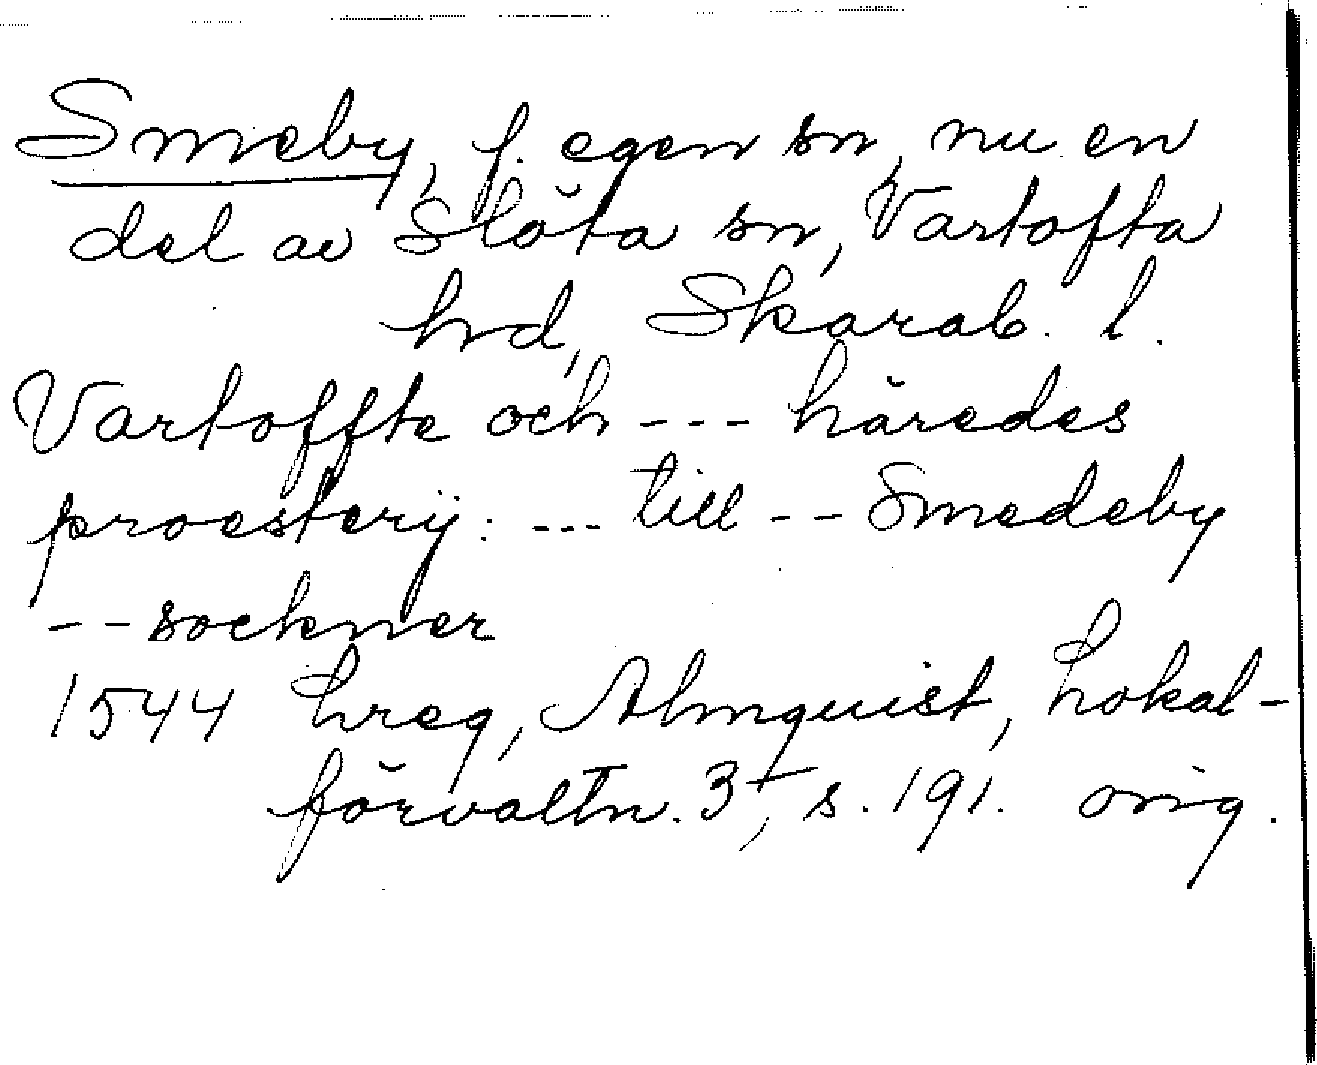 Smeby, f. egen sn, nu en
del av Slöta sn, Vartofta
hd, Skarab. l.
Vartoffte och --- häredes
proesterij: --- till -- Smedeby
-- sockner
1544 hreg, Almquist, Lokal-
förvaltn. 3, s. 191. orig.